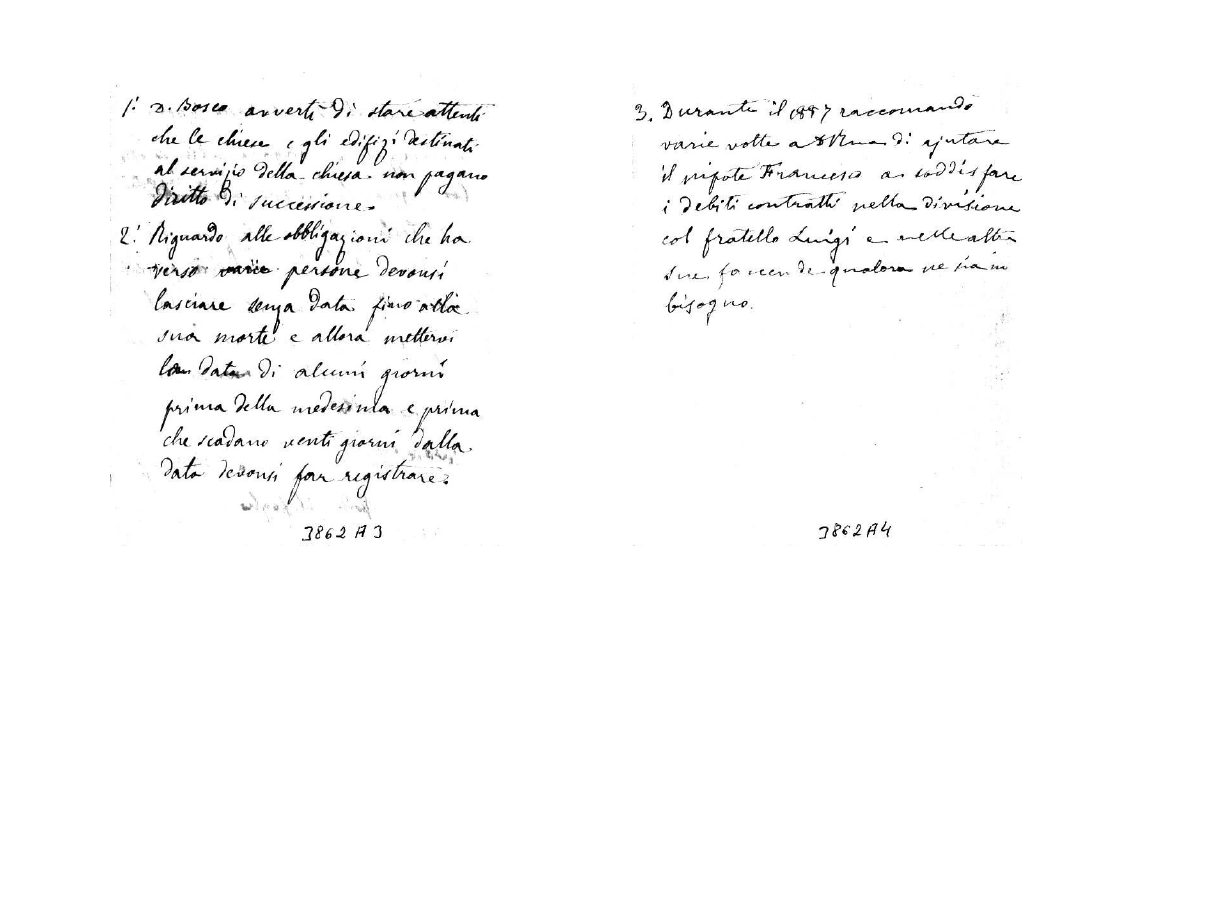 1.° D. Bosco avvertì di stare attenti
che le chiese e gli edifizi destinati
al servizio della chiesa non pagano
diritto di successione.
2.° Riguardo alle obbligazioni che ha
verso varie persone devonsi
lasciare senza data fino alla
sua morte e allora mettervi
la data di alcuni giorni
prima della medesima e prima
che scadano venti giorni dalla
data devonsi far registrare.
3862 A 3
3. Durante il 1887 raccomandò
varie volte a D Rua di ajutare
il nipote Francesco a soddisfare
i debiti contratti nella divisione
col fratello Luigi e nelle altre
sue faccende qualora ne sia in
bisogno.
3862 A4